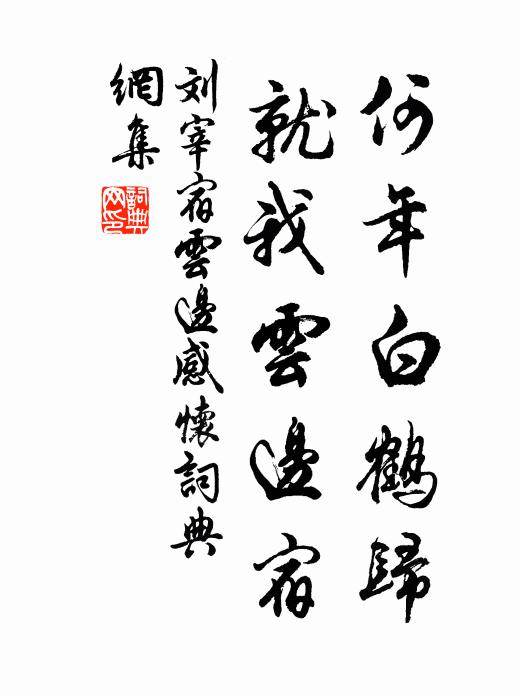 何年白鶴歸
就我雲邊宿
刘宰宿雲邊感懷詞典
網集
詞典
网印